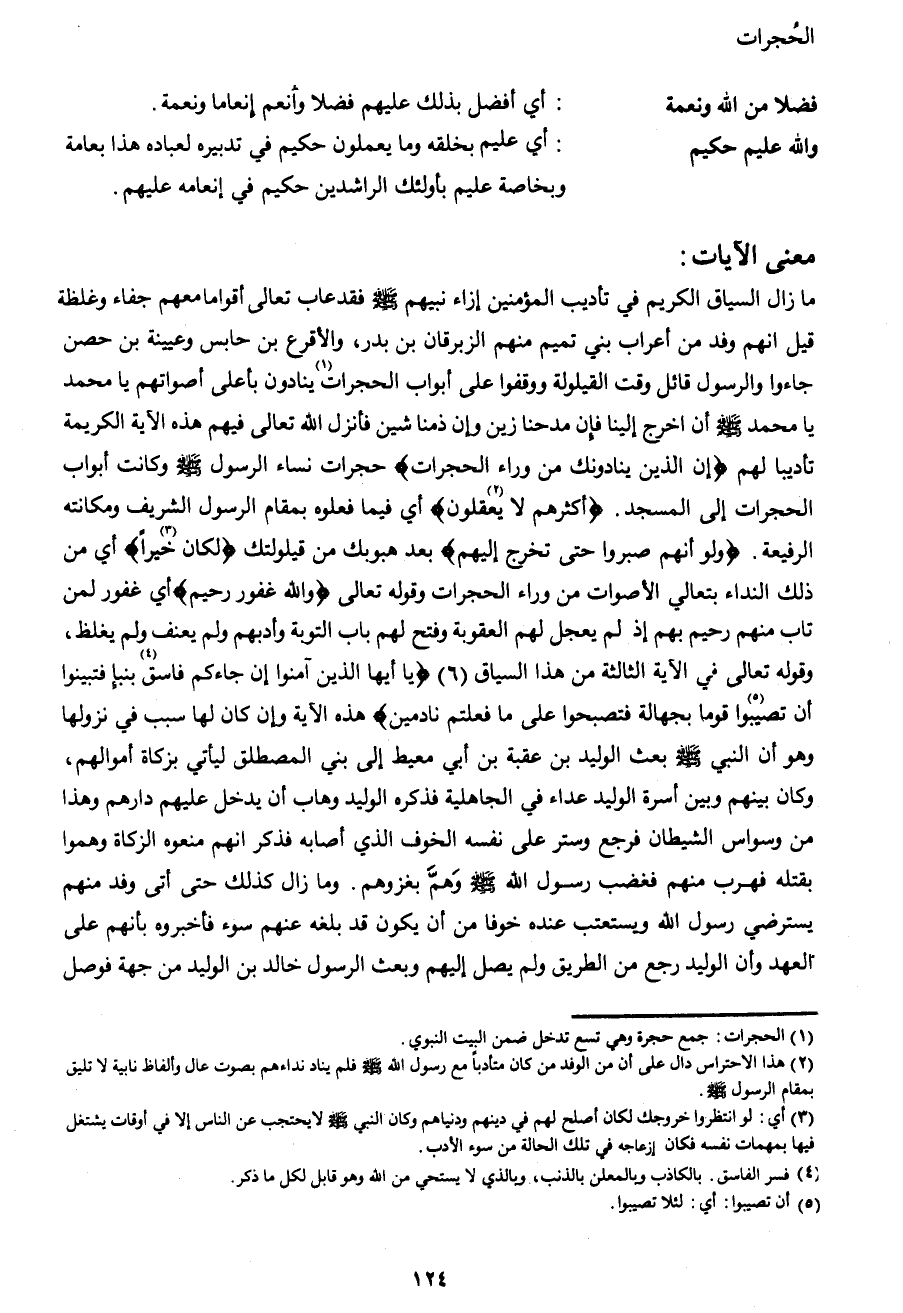 الحُجرات
فضلا من الله ونعمة : أي أفضل بذلك عليهم فضلا وأنعم إنعاما ونعمة.
والله عليم حكيم : أي عليم بخلقه وما يعملون حكيم في تدبيره لعباده هذا بعامة
وبخاصة عليم بأولئك الراشدين حكيم في إنعامه عليهم.
معنى الآيات:
ما زال السياق الكريم في تأديب المؤمنين إزاء نبيهم ﷺ فقدعاب تعالى أقوامامعهم جفاء وغلظة
قيل انهم وفد من أعراب بني تميم منهم الزبرقان بن بدر، والأقرع بن حابس وعيينة بن حصن
جاءوا والرسول قائل وقت القيلولة ووقفوا على أبواب الحجرات(١) ينادون بأعلى أصواتهم يا محمد
يا محمد ﷺ أن اخرج إلينا فإن مدحنا زين وإن ذمنا شين فأنزل الله تعالى فيهم هذه الآية الكريمة
تأديبا لهم ﴿إن الذين ينادونك من وراء الحجرات﴾ حجرات نساء الرسول ﷺ وكانت أبواب
الحجرات إلى المسجد. ﴿أكثرهم لا يعقلون(٢)﴾ أي فيما فعلوه بمقام الرسول الشريف ومكانته
الرفيعة. ﴿ولو أنهم صبروا حتى تخرج إليهم﴾ بعد هبوبك من قيلولتك ﴿لكان خيراً(٣)﴾ أي من
ذلك النداء بتعالي الأصوات من وراء الحجرات وقوله تعالى ﴿والله غفور رحيم﴾أي غفور لمن
تاب منهم رحيم بهم إذ لم يعجل لهم العقوبة وفتح لهم باب التوبة وأدبهم ولم يعنف ولم يغلظ،
وقوله تعالى في الآية الثالثة من هذا السياق (٦) ﴿يا أيها الذين آمنوا إن جاءكم فاسق(٤) بنبإ فتبينوا
أن تصيبوا(٥) قوما بجهالة فتصبحوا على ما فعلتم نادمين﴾ هذه الآية وإن كان لها سبب في نزولها
وهو أن النبي ﷺ بعث الوليد بن عقبة بن أبي معيط إلى بني المصطلق ليأتي بزكاة أموالهم،
وكان بينهم وبين أسرة الوليد عداء في الجاهلية فذكره الوليد وهاب أن يدخل عليهم دارهم وهذا
من وسواس الشيطان فرجع وستر على نفسه الخوف الذي أصابه فذكر انهم منعوه الزكاة وهموا
بقتله فهرب منهم فغضب رسول الله ﷺ وَهمَّ بغزوهم. وما زال كذلك حتى أتى وفد منهم
يسترضي رسول الله ويستعتب عنده خوفا من أن يكون قد بلغه عنهم سوء فأخبروه بأنهم على
العهد وأن الوليد رجع من الطريق ولم يصل إليهم وبعث الرسول خالد بن الوليد من جهة فوصل
(١) الحجرات: جمع حجرة وهي تسع تدخل ضمن البيت النبوي.
(٢) هذا الاحتراس دال على أن من الوفد من كان متأدباً مع رسول الله ﷺ فلم يناد نداءهم بصوت عال وألفاظ نابية لا تليق
بمقام الرسول ﷺ.
(٣) أي: لو انتظروا خروجك لكان أصلح لهم في دينهم ودنياهم وكان النبي ﷺ لايحتجب عن الناس إلا في أوقات يشتغل
فيها بمهمات نفسه فكان إزعاجه في تلك الحالة من سوء الأدب.
(٤) فسر الفاسق. بالكاذب وبالمعلن بالذنب، وبالذي لا يستحي من الله وهو قابل لكل ما ذكر.
(٥) أن تصيبوا: أي: لئلا تصيبوا.
١٢٤